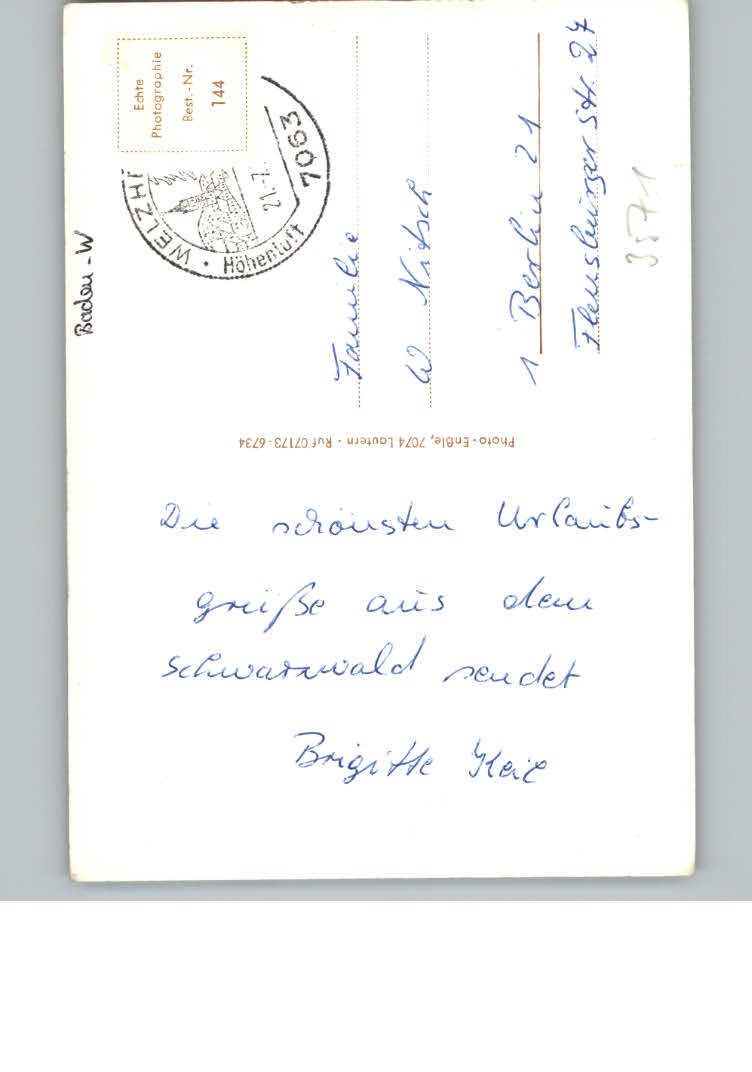 Baden-W
Echte
Photographie
Best.-Nr.
144
WELZHEI
7063
21.-7.
Höhenluft
Familie
W Nitsch
1 Berlin 21
Flensburger Str. 27
3571
Photo-Enßle, 7074 Lautern - Ruf 07173-6734
Die schönsten Urlaubs-
grüße aus dem
Schwarzwald sendet
Brigitte Keil